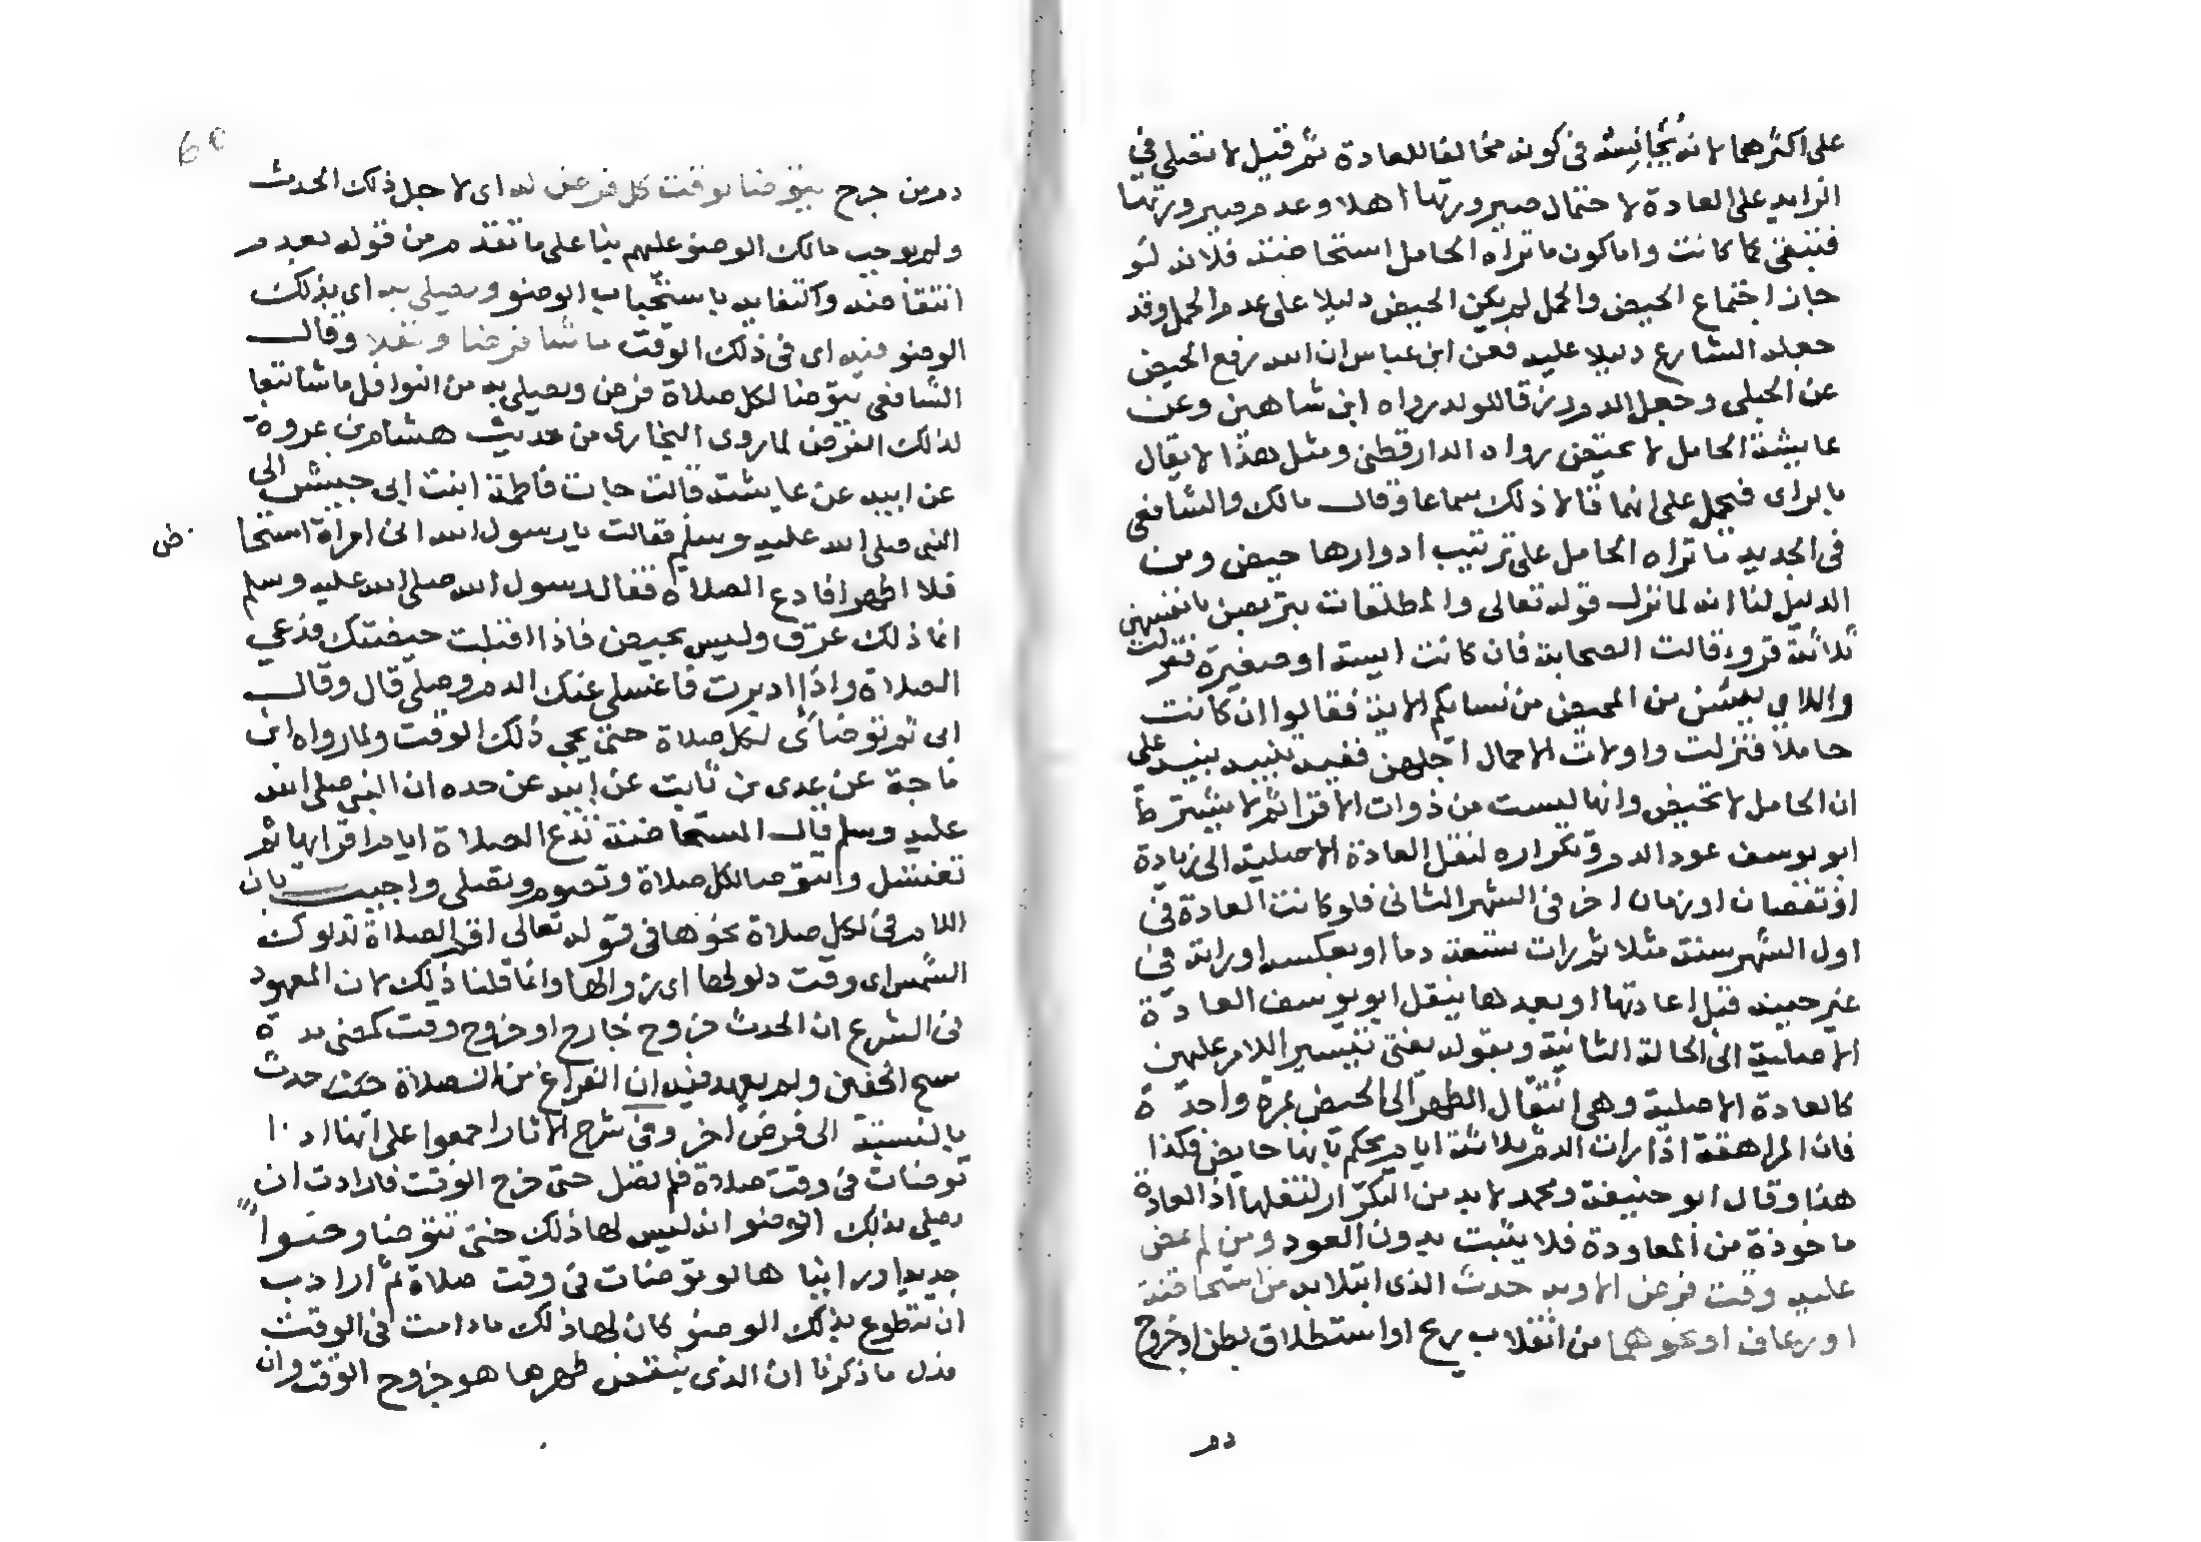 على اكثرهما لانه يُجَانِسُه فى كونه مخالفا للعادة ثم قيل لا تصلى فى
الزايد على العادة لاحتمال صيرورتها اهلا وعدم صيرورتها
فتبقى كما كانت واما كون ما تراه الحامل استحاضة فلانه لو
جاز اجتماع الحيض والحمل لم يكن الحيض دليلا على عدم الحمل وقد
جعله الشارع دليلا عليه فعن ابن عباس ان الله رفع الحيض
عن الحبلى وجعل الدم رزقا للولد رواه ابن شاهين وعن
عايشة الحامل لا تحيض رواه الدارقطنى ومثل هذا لا يقال
بالراى فيحمل على انهما قالا ذلك سماعا وقال مالك والشافعى
فى الجديد ما تراه الحامل على ترتيب ادوارها حيض ومن
الدليل لنا انه لما نزل قوله تعالى والمطلقات يتربصن بانفسهن
ثلاثة قروء قالت الصحابة فان كانت ايسة او صغيرة فنزلت
واللاى يئسن من المحيض من نسايكم الاية فقالوا ان كانت
حاملا فنزلت واولات الاحمال اجلهن ففيه تنبيه على
ان الحامل لا تحيض وانها ليست من ذوات الاقراء ثم لا يشترط
ابو يوسف عود الدم وتكراره لنقل العادة الاصلية الى زيادة
او نقصان او زمان اخر فى الشهر الثانى فلو كانت العادة فى
اول الشهر ستة مثلا ثم رات سبعة دما او بعكسه او راته فى
غير حينه قبل عادتها او بعدها ينقل ابو يوسف العادة
الاصلية الى الحالة الثانية وبقوله يفتى تيسيرا للامر عليهن
كالعادة الاصلية وهى انتقال الطهر الى الحيض بمرة واحدة
فان المراهقة اذا رات الدم ثلاثة ايام يحكم بانها حايض فكذا
هنا وقال ابو حنيفة ومحمد لا بد من التكرار لنقلها اذ العادة
ماخوذة من المعاودة فلا يثبت بدون العود ومن لم يمض
عليه وقت فرض الا وبه حدث الذى ابتلا به من استحاضة
او رعاف او نحوهما من انفلات ريح او استطلاق بطن او خروج
دم
60
دم من جرح يتوضا لوقت كل فرض له اى لاجل ذلك الحدث
ولم يوجب مالك الوضو عليهم بنا على ما تقدم من قوله بعدم
انتقاضه واكتفايه باستحباب الوضو ويصلى به اى بذلك
الوضو فيه اى فى ذلك الوقت ما شا فرضا ونفلا وقال
الشافعى يتوضا لكل صلاة فرض ويصلى به من النوافل ما شا تبعا
لذلك الفرض لما روى البخارى من حديث هشام بن عروة
عن ابيه عن عايشة قالت جات فاطمة ابنت ابى حبيش الى
النبى صلى الله عليه وسلم فقالت يا رسول الله انى امراة استحا
ض
فلا اطهر افادع الصلاة فقال رسول الله صلى الله عليه وسلم
انما ذلك عرق وليس بحيض فاذا اقبلت حيضتك فدعى
الصلاة واذا ادبرت فاغسلى عنك الدم وصلى قال وقال
ابى ثم توضاى لكل صلاة حتى يجى ذلك الوقت ولما رواه ابن
ماجة عن عدى بن ثابت عن ابيه عن جده ان النبى صلى الله
عليه وسلم قال المستحاضة تدع الصلاة ايام اقرايها ثم
تغتسل وتتوضا لكل صلاة وتصوم وتصلى واجيب بان
اللام فى لكل صلاة نحوها فى قوله تعالى اقم الصلاة لدلوك
الشمس اى وقت دلوكها اى زوالها وانما قلنا ذلك لان المعهود
فى الشرع ان الحدث خروج خارج او خروج وقت كمضى مدة
مسح الخفين ولم يعهد فيه ان الفراغ من الصلاة حدث
بالنسبة الى فرض اخر وفى شرح الاثار اجمعوا على انها اذا
توضات فى وقت صلاة فلم تصل حتى خرج الوقت فارادت ان
تصلى بذلك الوضوا انه ليس لها ذلك حتى تتوضا وضوا
جديدا وراينا ها لو توضات فى وقت صلاة ثم ارادت
ان تتطوع بذلك الوضو كان لها ذلك ما دامت فى الوقت
فدل ما ذكرنا ان الذى ينتقض طهرها هو خروج الوقت وان